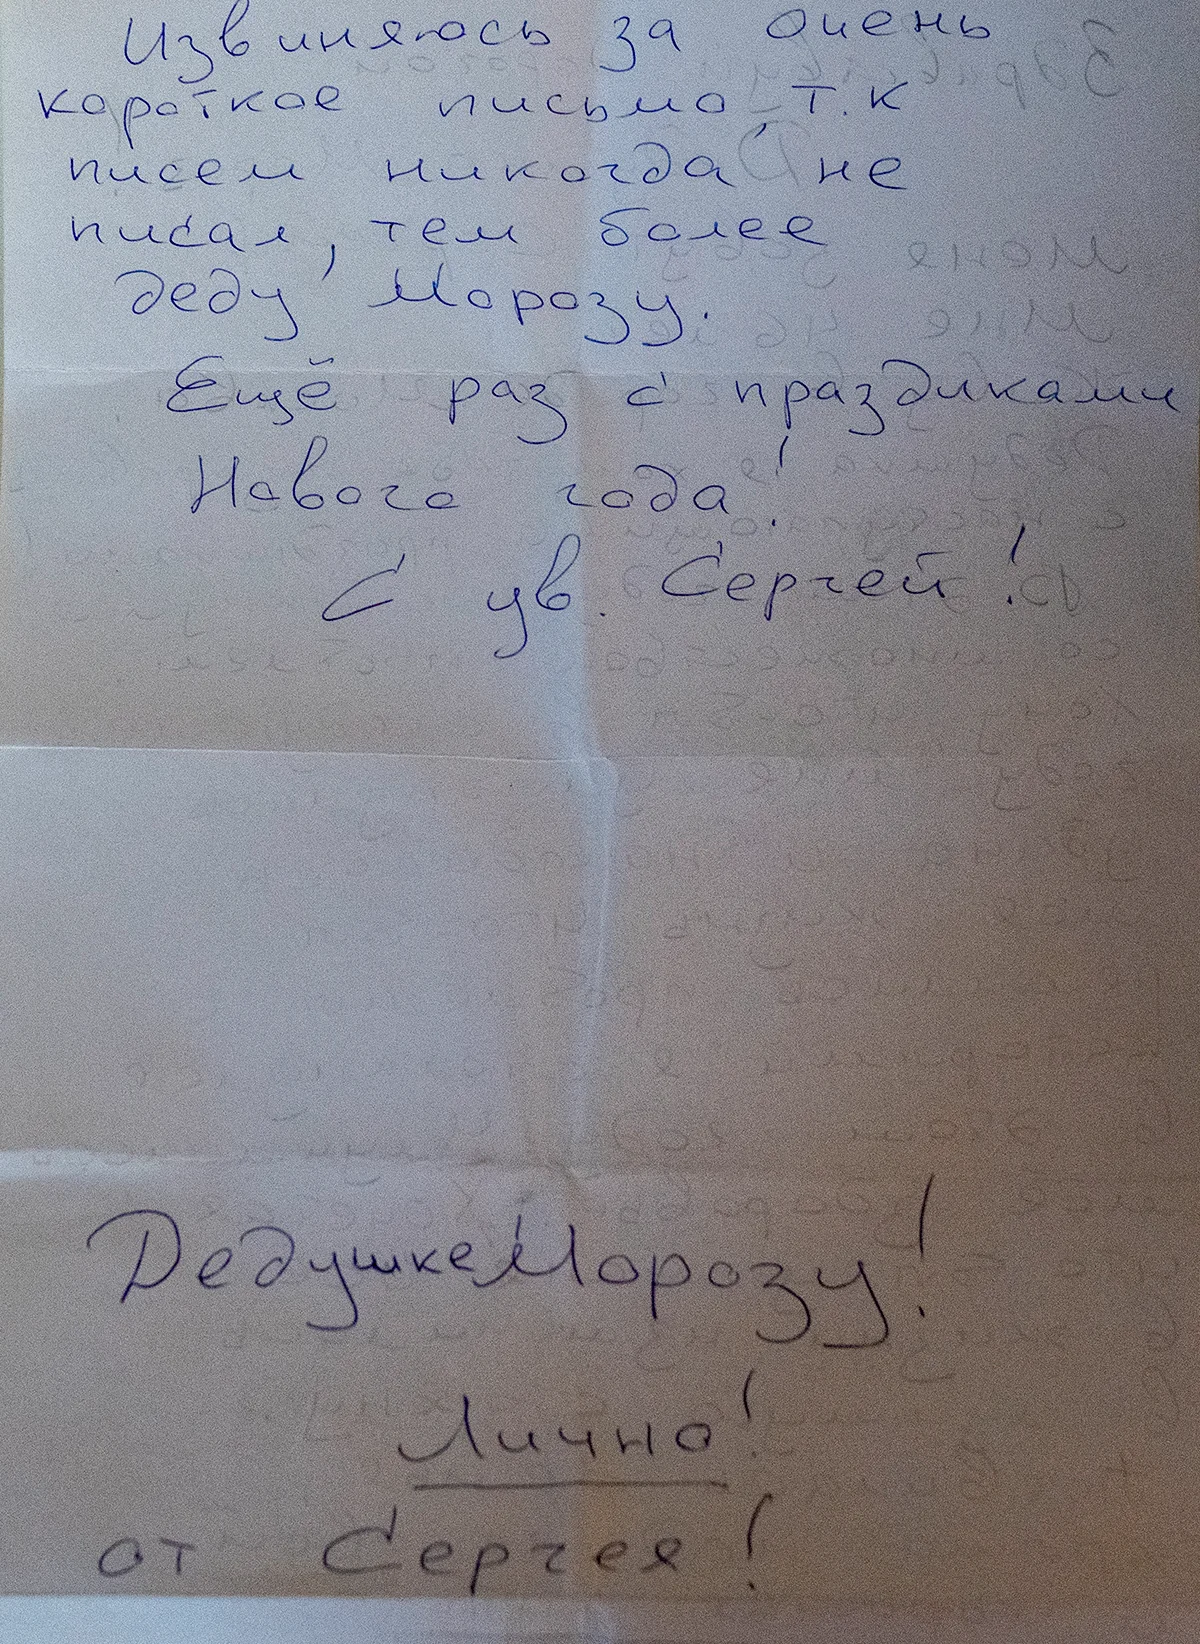 Извиняюсь за очень
короткое письмо, т.к
писем никогда не
писал, тем более
деду Морозу.
Ещё раз с праздиками
Нового года!
С ув. Сергей!
Дедушке Морозу!
Лично!
от Сергея!